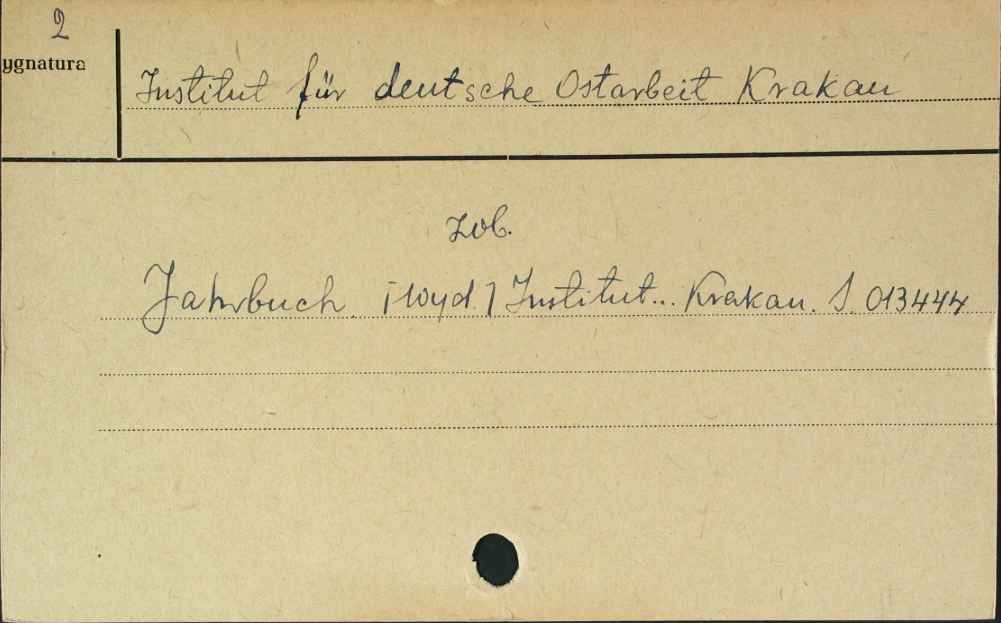 2
ygnatura
Institut für deutsche Ostarbeit Krakau
zob.
Jahrbuch. [wyd.] Institut... Krakau. S. 013444